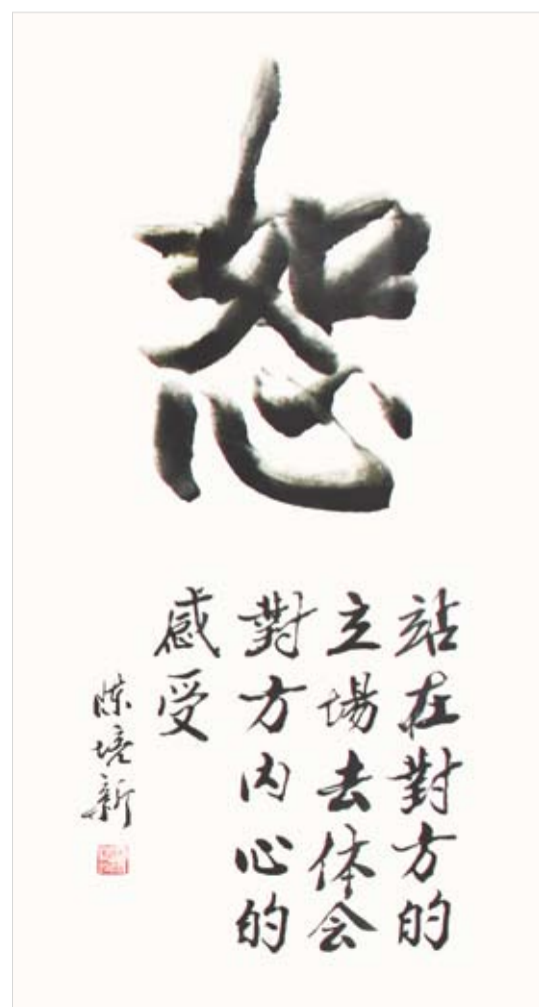 恕
站在對方的
立場去体会
對方内心的
感受
陈培新